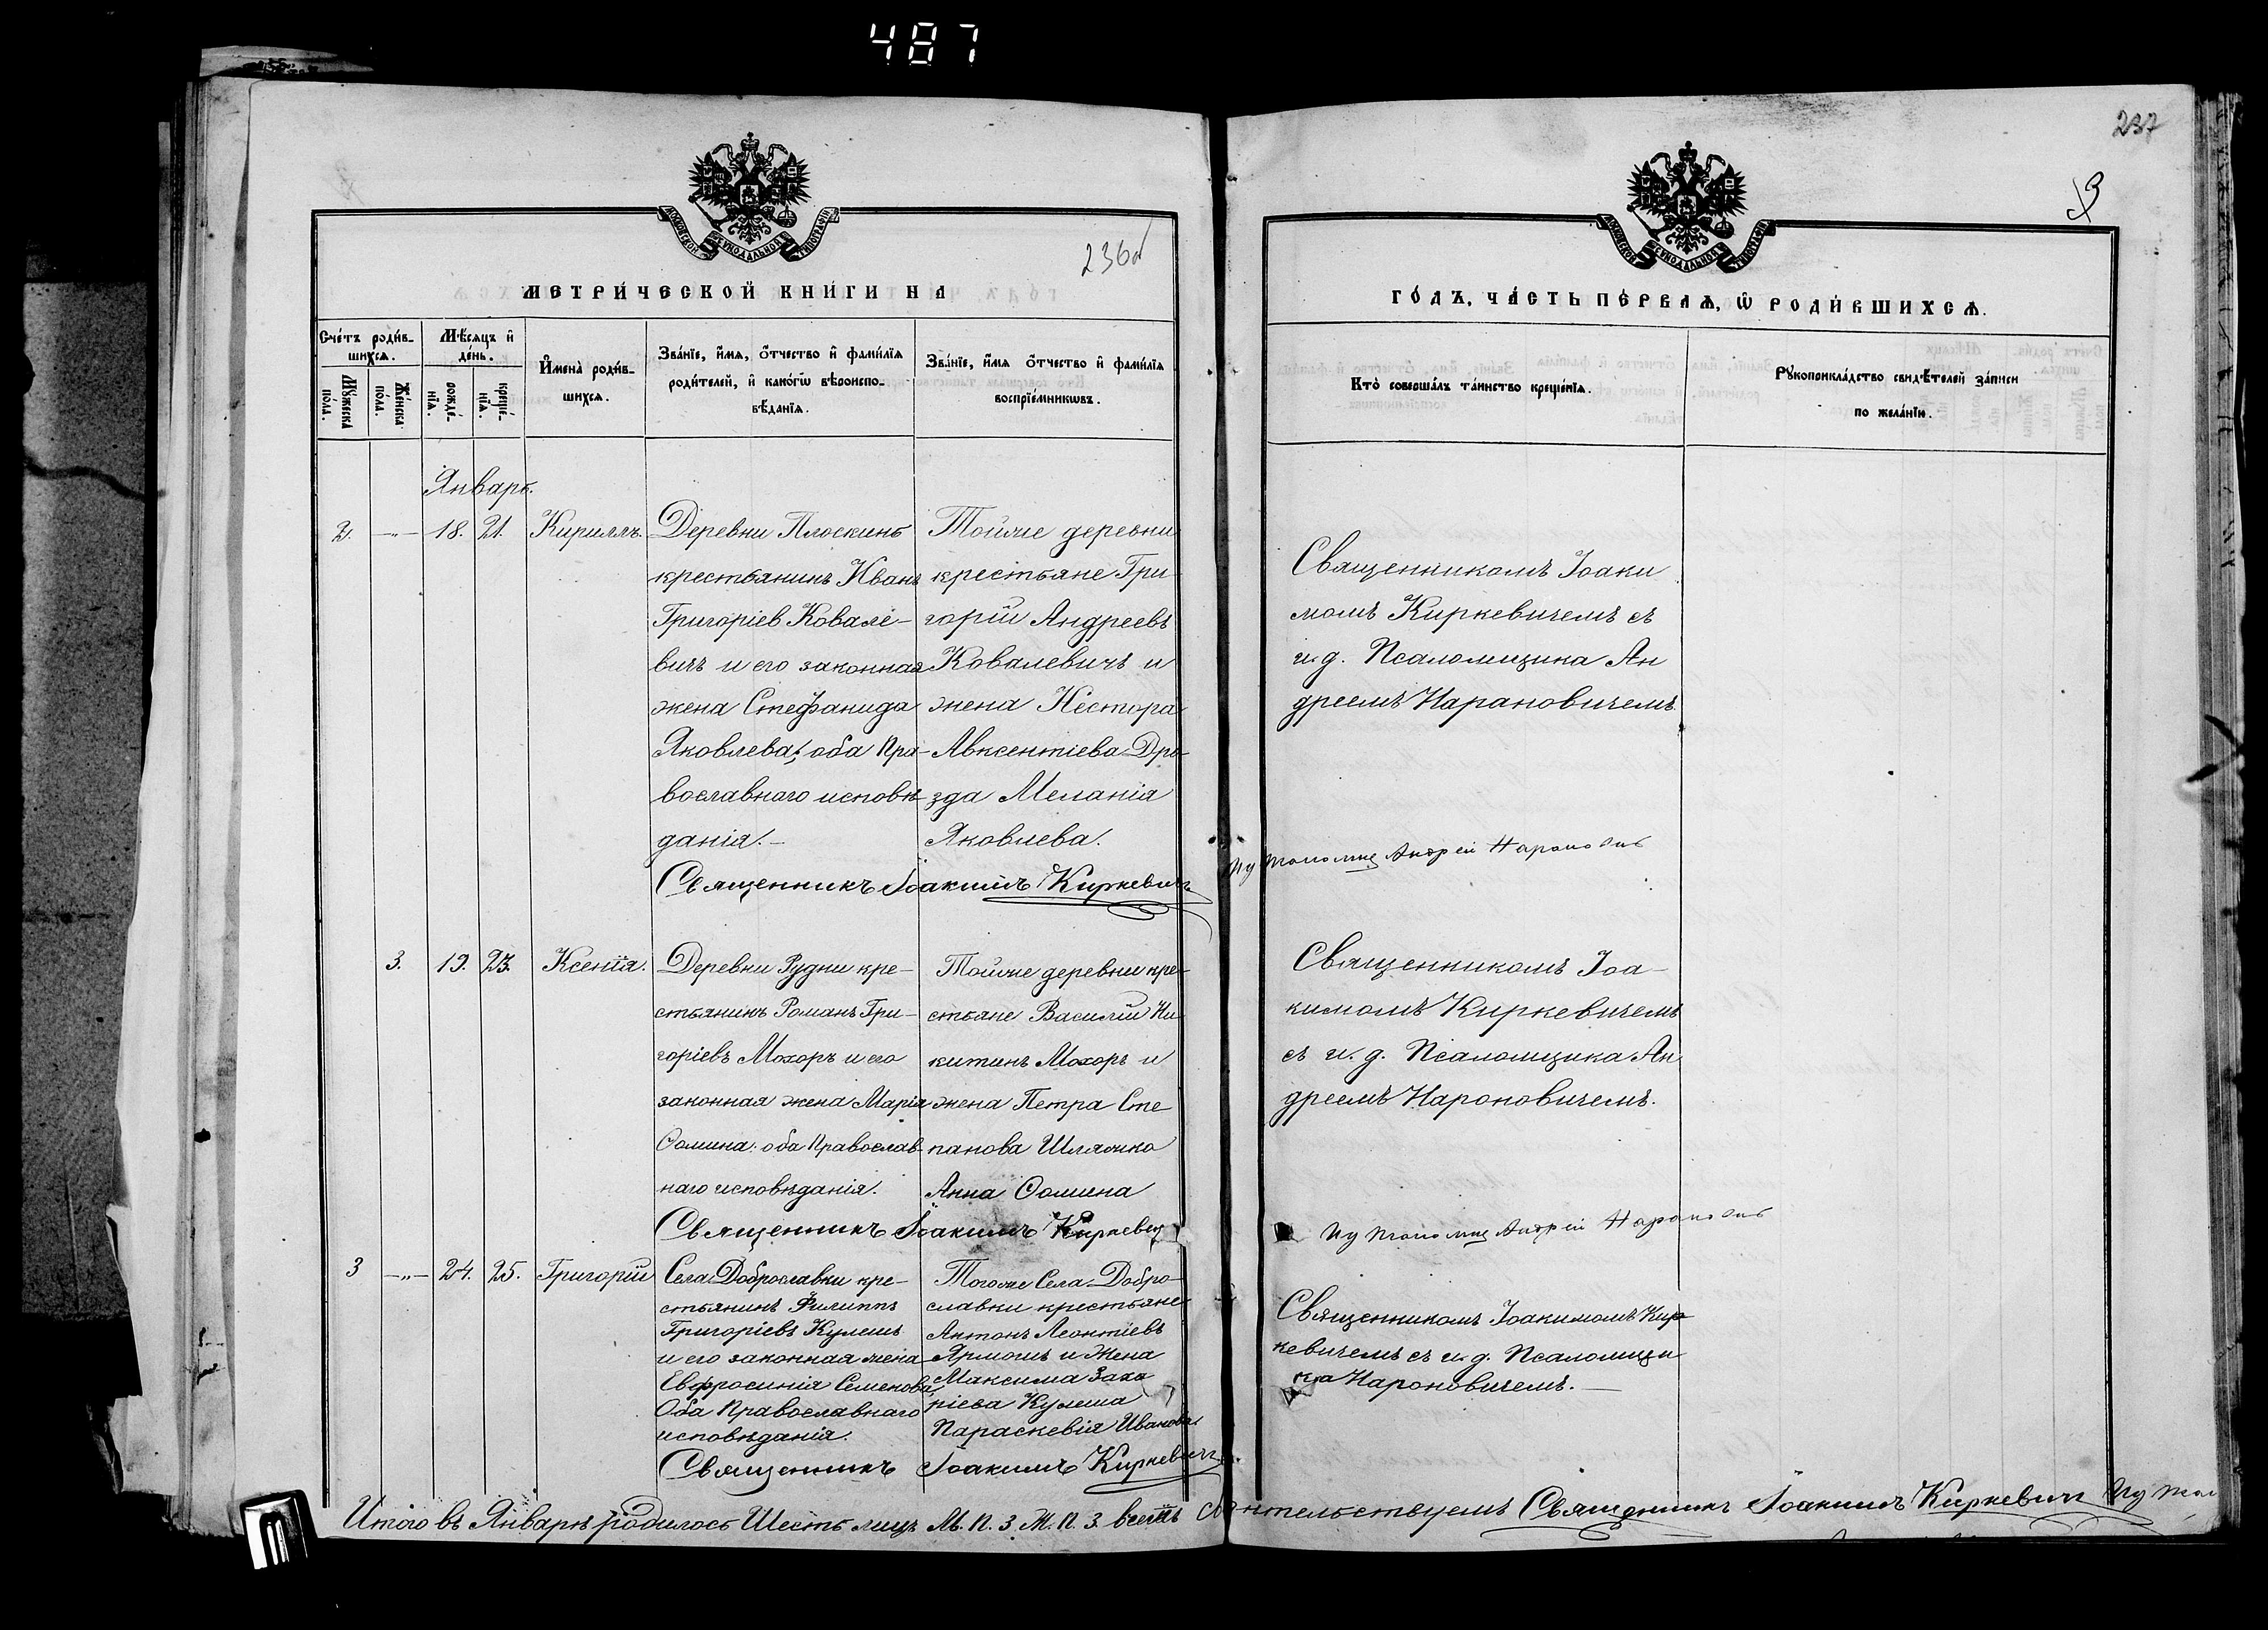 487
236об
МЕТРИ́ЧЕСКОЙ КНИ́ГИ НА
Сче́тъ роди́в-
шихся.
Мѣ́сяцъ и҆
де́нь.
Мꙋ́жеска
по́ла.
Же́нска
по́ла.
рожде́-
нїѧ.
креще́-
нїѧ.
И҆мена̀ роди́в-
шихся.
Зва́нїе, и҆́мѧ, ѻ҆́тчество и҆ фами́лїѧ
роди́телей, и҆ како́гѡ вѣроиспо-
вѣ́данїѧ.
Зва́нїе, и҆́мѧ ѻ҆́тчество и҆ фами́лїѧ
воспрїе́мникѡвъ.
Январь.
2. -"- 18. 21. Кириллъ.
Деревни Плоскинь
крестьянинъ Иванъ
Григоріев Ковале-
вичъ и его законная
жена Стефанида
Яковлева; оба Пра-
вославнаго исповѣ
данія.-
Тойже деревни
крестьяне Гри
горій Андреевъ
Ковалевичъ и
жена Нестора
Авксентіева Дро-
зда Меланія
Яковлева.
Священникъ Іоакимъ Киркевичъ
3. 19. 23. Ксенія.
Деревни Рудни кре-
стьянинъ Романъ Гри-
горіевъ Мохоръ и его
законная жена Марія
Ѳомина: оба Православ-
наго исповѣданія.
Тойже деревни кре-
стьяне Василій Ни
китинъ Мохоръ и
жена Петра Сте
панова Шляжко
Анна Ѳомина
Священникъ Іоакимъ Киркевич
3 -"- 24. 25. Григорій
Села Доброславки кре-
стьянинъ Филиппъ
Григоріевъ Кулешъ
и его законная жена
Евфросинія Семенова,
Оба Православнаго
исповѣданія.
Тогоже Села Добро-
славки крестьяне
Антонъ Леонтіевъ
Ярмошъ и Жена
Максима Заха
ріева Кулеша
Параскевія Иванова
Священникъ Іоакимъ Киркевичъ
Итого въ Январѣ родилось Шесть лицъ М. П. 3. Ж. П. 3. Священникъ Іоакимъ Киркевич
237
9
ГО́ДЪ, ЧА́СТЬ ПЕ́РВАѦ, Ѡ҆ РОДИ́ВШИХСѦ.
Кто̀ соверша́лъ та́инство креще́нїѧ.
Рꙋкоприкла́дство свидѣ́телей за́писи
по жела́нїю.
Священникомъ Іоаки
момъ Киркевичемъ съ
и.д. Псаломщика Ан
дреемъ Нарановичемъ.
Андрей Нароновичъ
Священникомъ Іоа-
кимомъ Киркевичемъ
съ и. д. Псаломщика Ан
дреемъ Нароновичемъ.
Андрей Нароновичъ
Священникомъ Іоакимомъ Кир
кевичемъ съ и. д. Псаломщи
ка Нароновичемъ.-